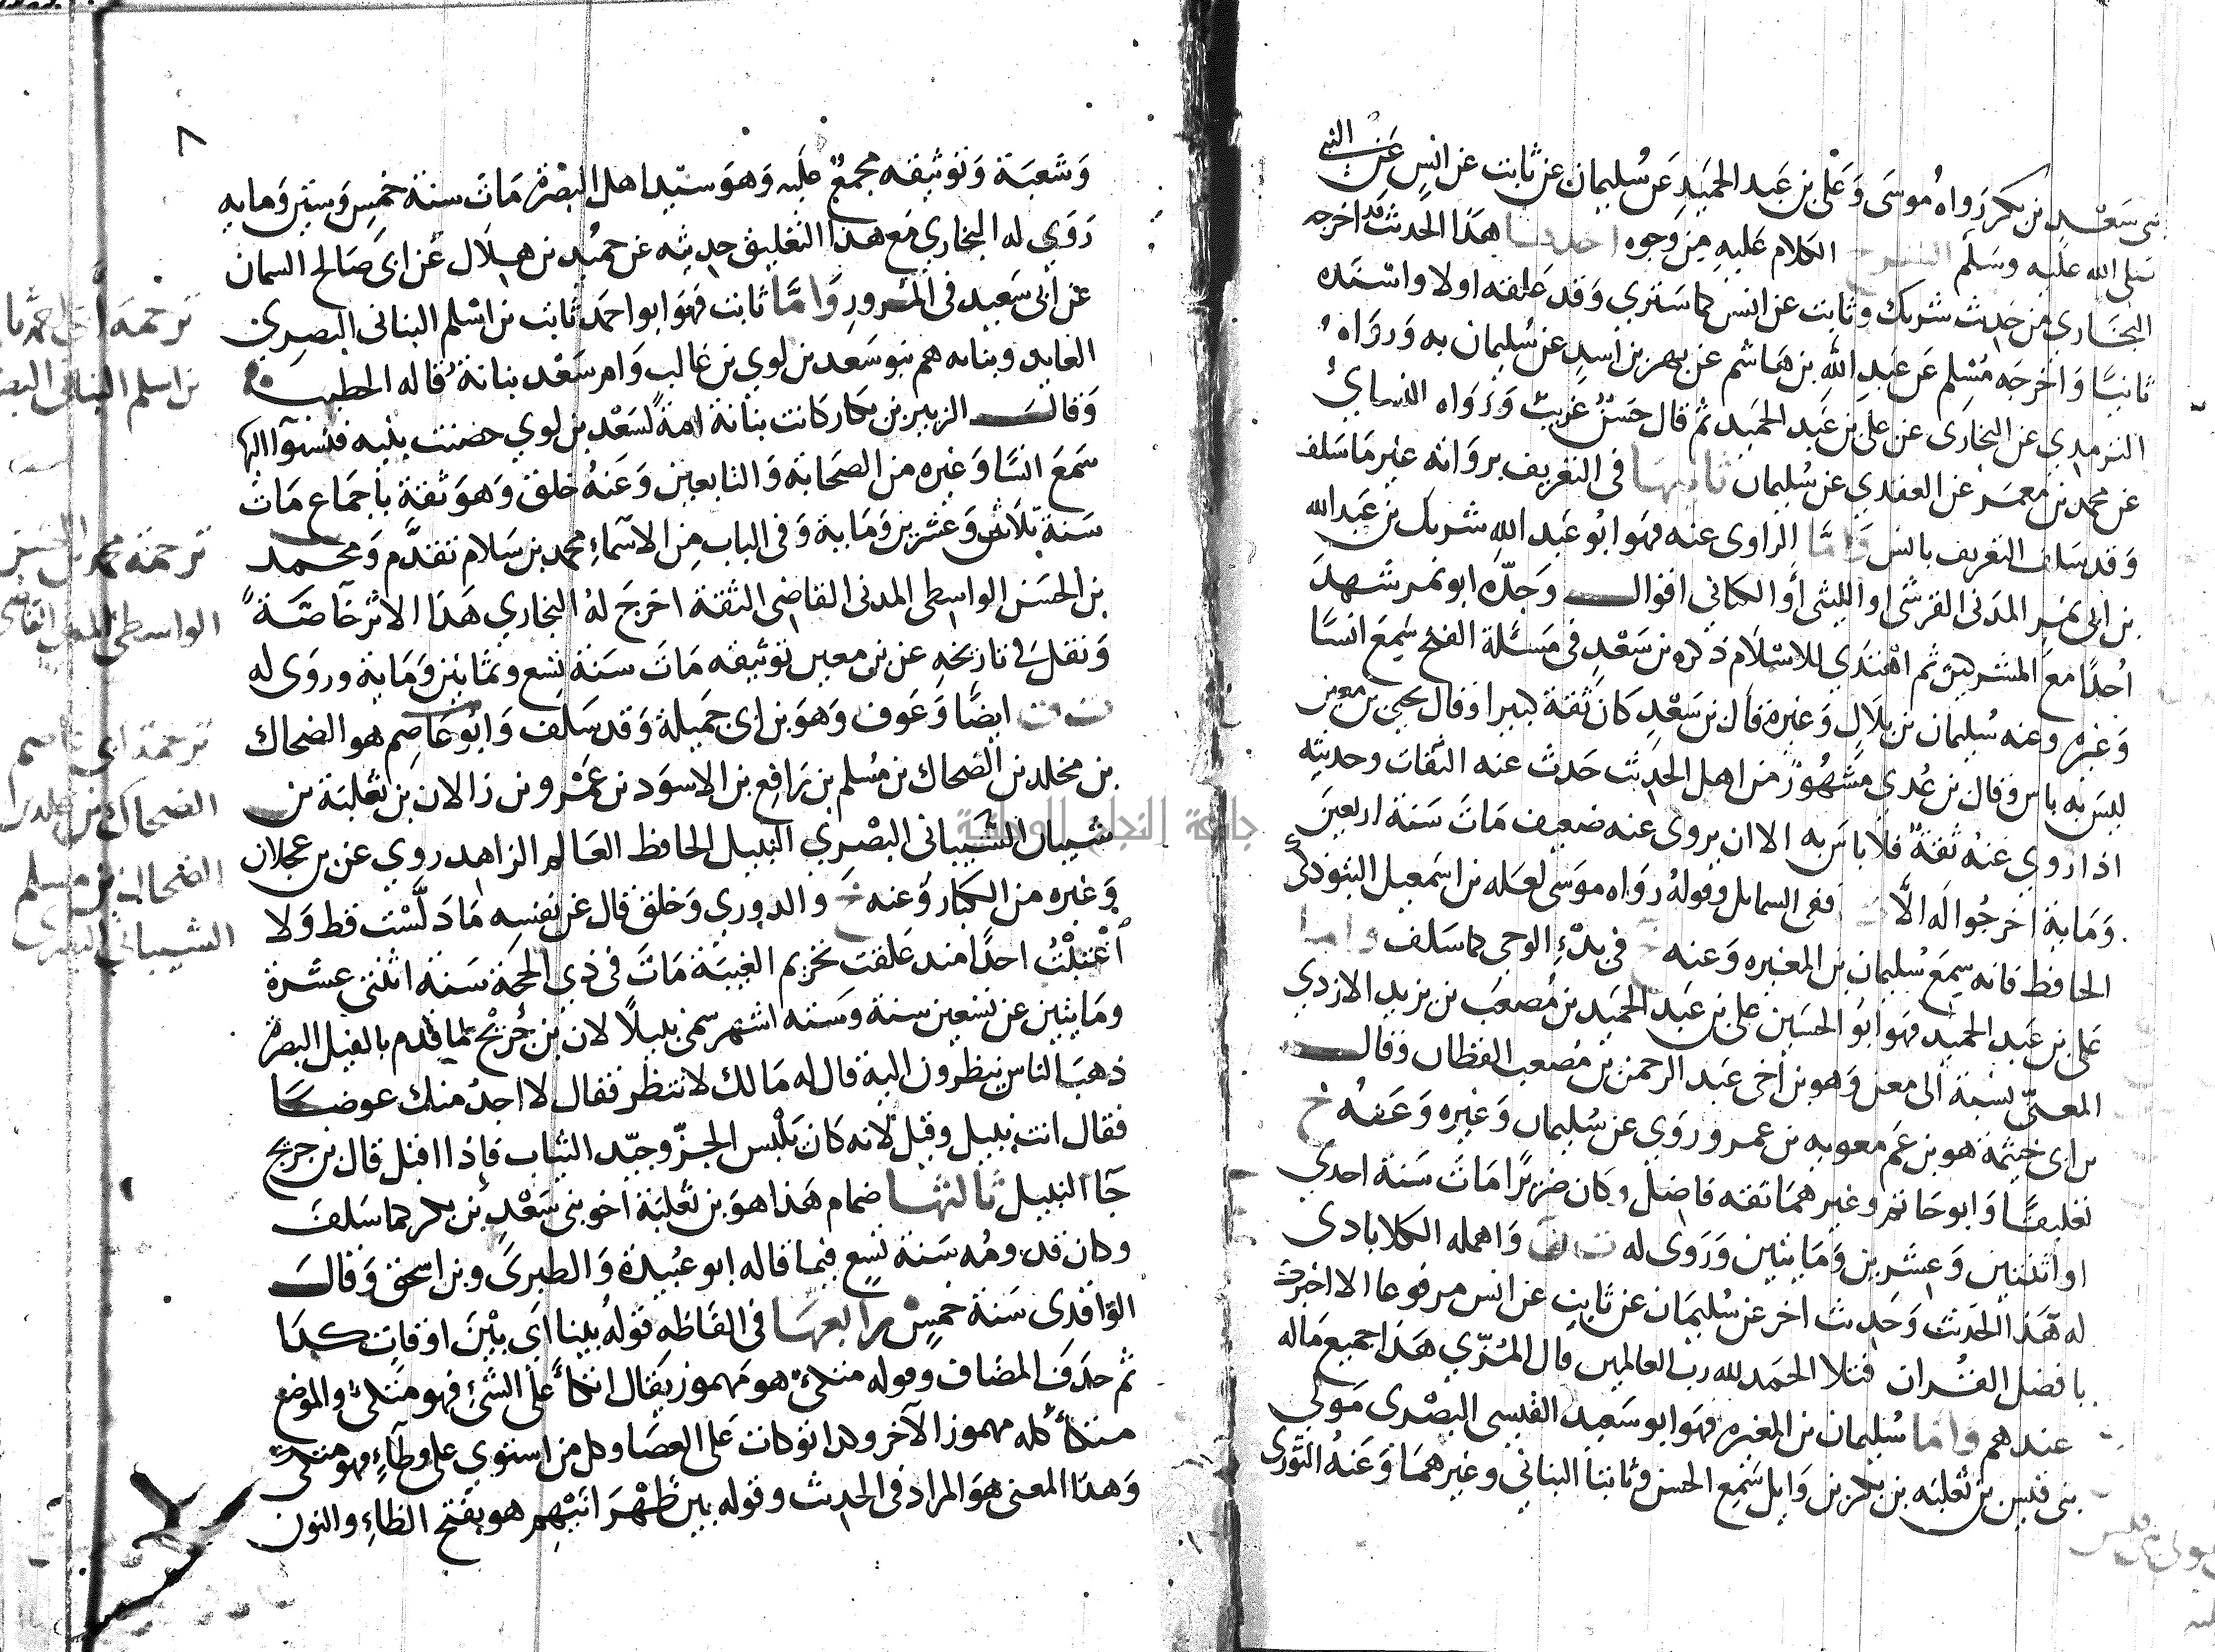 بني سعد بن بكر رواه موسى وعلي بن عبد الحميد عن سليمان عن ثابت عن انس عن النبي
صلى الله عليه وسلم الشرح الكلام عليه من وجوه احدها هذا الحديث قد اخرجه
البخاري من حديث شريك وثابت عن انس كما سترى وقد علقه اولا واسنده
ثانيا واخرجه مسلم عن عبد الله بن هاشم عن بهز بن اسد عن سليمان به ورواه
الترمذي عن البخاري عن علي بن عبد الحميد ثم قال حسن غريب ورواه النسائي
عن محمد بن معمر عن العقدي عن سليمان ثانيها في التعريف برواته غير ما سلف
وقد سلف التعريف بانس واما الراوى عنه فهو ابو عبد الله شريك بن عبد الله
بن ابي نمر المدني القرشي او الليثي او الكناني اقوال وجده ابو نمر شهد
احدا مع المشركين ثم اهتدي للاسلام ذكره بن سعد في مسلمة الفتح سمع انسا
وغيره وعنه سليمان بن بلال وغيره قال بن سعد كان ثقة كثيرا وقال يحيى بن معين
ليس به باس وقال بن عدي مشهور من اهل الحديث حدث عنه الثقات وحديثه
اذا روي عنه ثقة فلا باس به الا ان يروى عنه ضعيف مات سنة اربعين
ومايه اخرجوا له الا ت ففي الشمايل وقوله رواه موسى لعله بن اسمعيل التبوذكي
الحافظ فانه سمع سليمان بن المغيره وعنه خ في بدء الوحي كما سلف واما
علي بن عبد الحميد فهو ابو الحسين علي بن عبد الحميد بن مصعب بن يزيد الازدي
المعني نسبة الى معن وهو بن اخي عبد الرحمن بن مصعب القطان وقال
بن ابي خيثمة هو بن عم معويه بن عمرو روى عن سليمان وغيره وعنه خ
تعليقا وابو حاتم وغيرهما ثقه فاضل وكان ضريرا مات سنة احدي
او اثنتين وعشرين ومايتين وروى له ت ن واهمله الكلابادى
له هذا الحديث وحديث اخر عن سليمان عن ثابت عن انس مرفوعا الا اخبرك
بافضل القران فتلا الحمد لله رب العالمين قال المزي هذا جميع ماله
عندهم واما سليمان بن المغيره فهو ابو سعيد القيسي البصرى مولي
بني قيس بن ثعلبه بن بكر بن وايل سمع الحسن وثابتا البناني وغيرهما وعنه الثوري
وشعبة وتوثيقه مجمع عليه وهو سيد اهل البصره مات سنة خمس وستين ومايه
روي له البخاري مع هذا التعليق حديثه عن حميد بن هلال عن ابي صالح السمان
عن ابي سعيد في المرور واما ثابت فهو ابو احمد ثابت بن اسلم البناني البصري
العابد وبنانه هم بنو سعد بن لوي بن غالب وام سعد بنانة قاله الخطيب
وقال الزبير بن بكار كانت بنانة امة لسعد بن لوي حضنت بنيه فنسبوا اليها
سمع انسا وغيره من الصحابة والتابعين وعنه خلق وهو ثقة باجماع مات
سنة ثلاث وعشرين ومايه وفي الباب من الاسماء محمد بن سلام تقدم ومحمد
بن الحسن الواسطي المدني القاضي الثقة اخرج له البخاري هذا الاثر خاصة
ونقل في تاريخه عن بن معين توثيقه مات سنة تسع وثمانين ومايه وروى له
ت ايضا وعوف وهو بن ابي جميلة وقد سلف وابو عاصم هو الضحاك
بن مخلد بن الضحاك بن مسلم بن رافع بن الاسود بن عمرو بن زالان بن ثعلبة بن
شيبان الشيباني البصري النبيل الحافظ العالم الزاهد روي عن بن عجلان
وغيره من الكبار وعنه خ والدوري وخلق قال عن نفسه ما دلست قط ولا
اغتبت احدا منذ علقت تحريم الغيبة مات في ذي الحجة سنة اثنتى عشرة
ومايتين عن تسعين سنة وسته اشهر سمي نبيلا لان بن جريج لما قدم بالفيل البصره
ذهب الناس ينظرون اليه قال له مالك لا تنظر فقال لا اجد منك عوضا
فقال انت نبيل وقيل لانه كان يلبس الخز وجيد الثياب فاذا اقبل قال بن جريج
جاا النبيل ثالثها ضمام هذا هو بن ثعلبة اخو بني سعد بن بكر كما سلف
وكان قدومه سنة تسع فيما قاله ابو عبيدة والطبري وبن اسحق وقال
الواقدى سنة خمس رابعها في الفاظه قوله بينا اي بين اوقات كذا
ثم حذف المضاف وقوله متكئ هو مهموز يقال اتكا على الشئ فهو متكئ والموضع
متكأ كله مهموز الآخر وكذا توكات على العصا وكل من استوي على وطاء فهو متكئ
وهذا المعنى هو المراد في الحديث وقوله بين ظهرانيهم هو بفتح الظاء والنون
ترجمة
بن اسلم البناني
ترجمة محمد بن الحسن
الواسطي
ترجمة ابي عاصم
الضحاك بن مخلد
الضحاك بن مسلم
الشيباني البصري
جامعة النجاح الوطنية